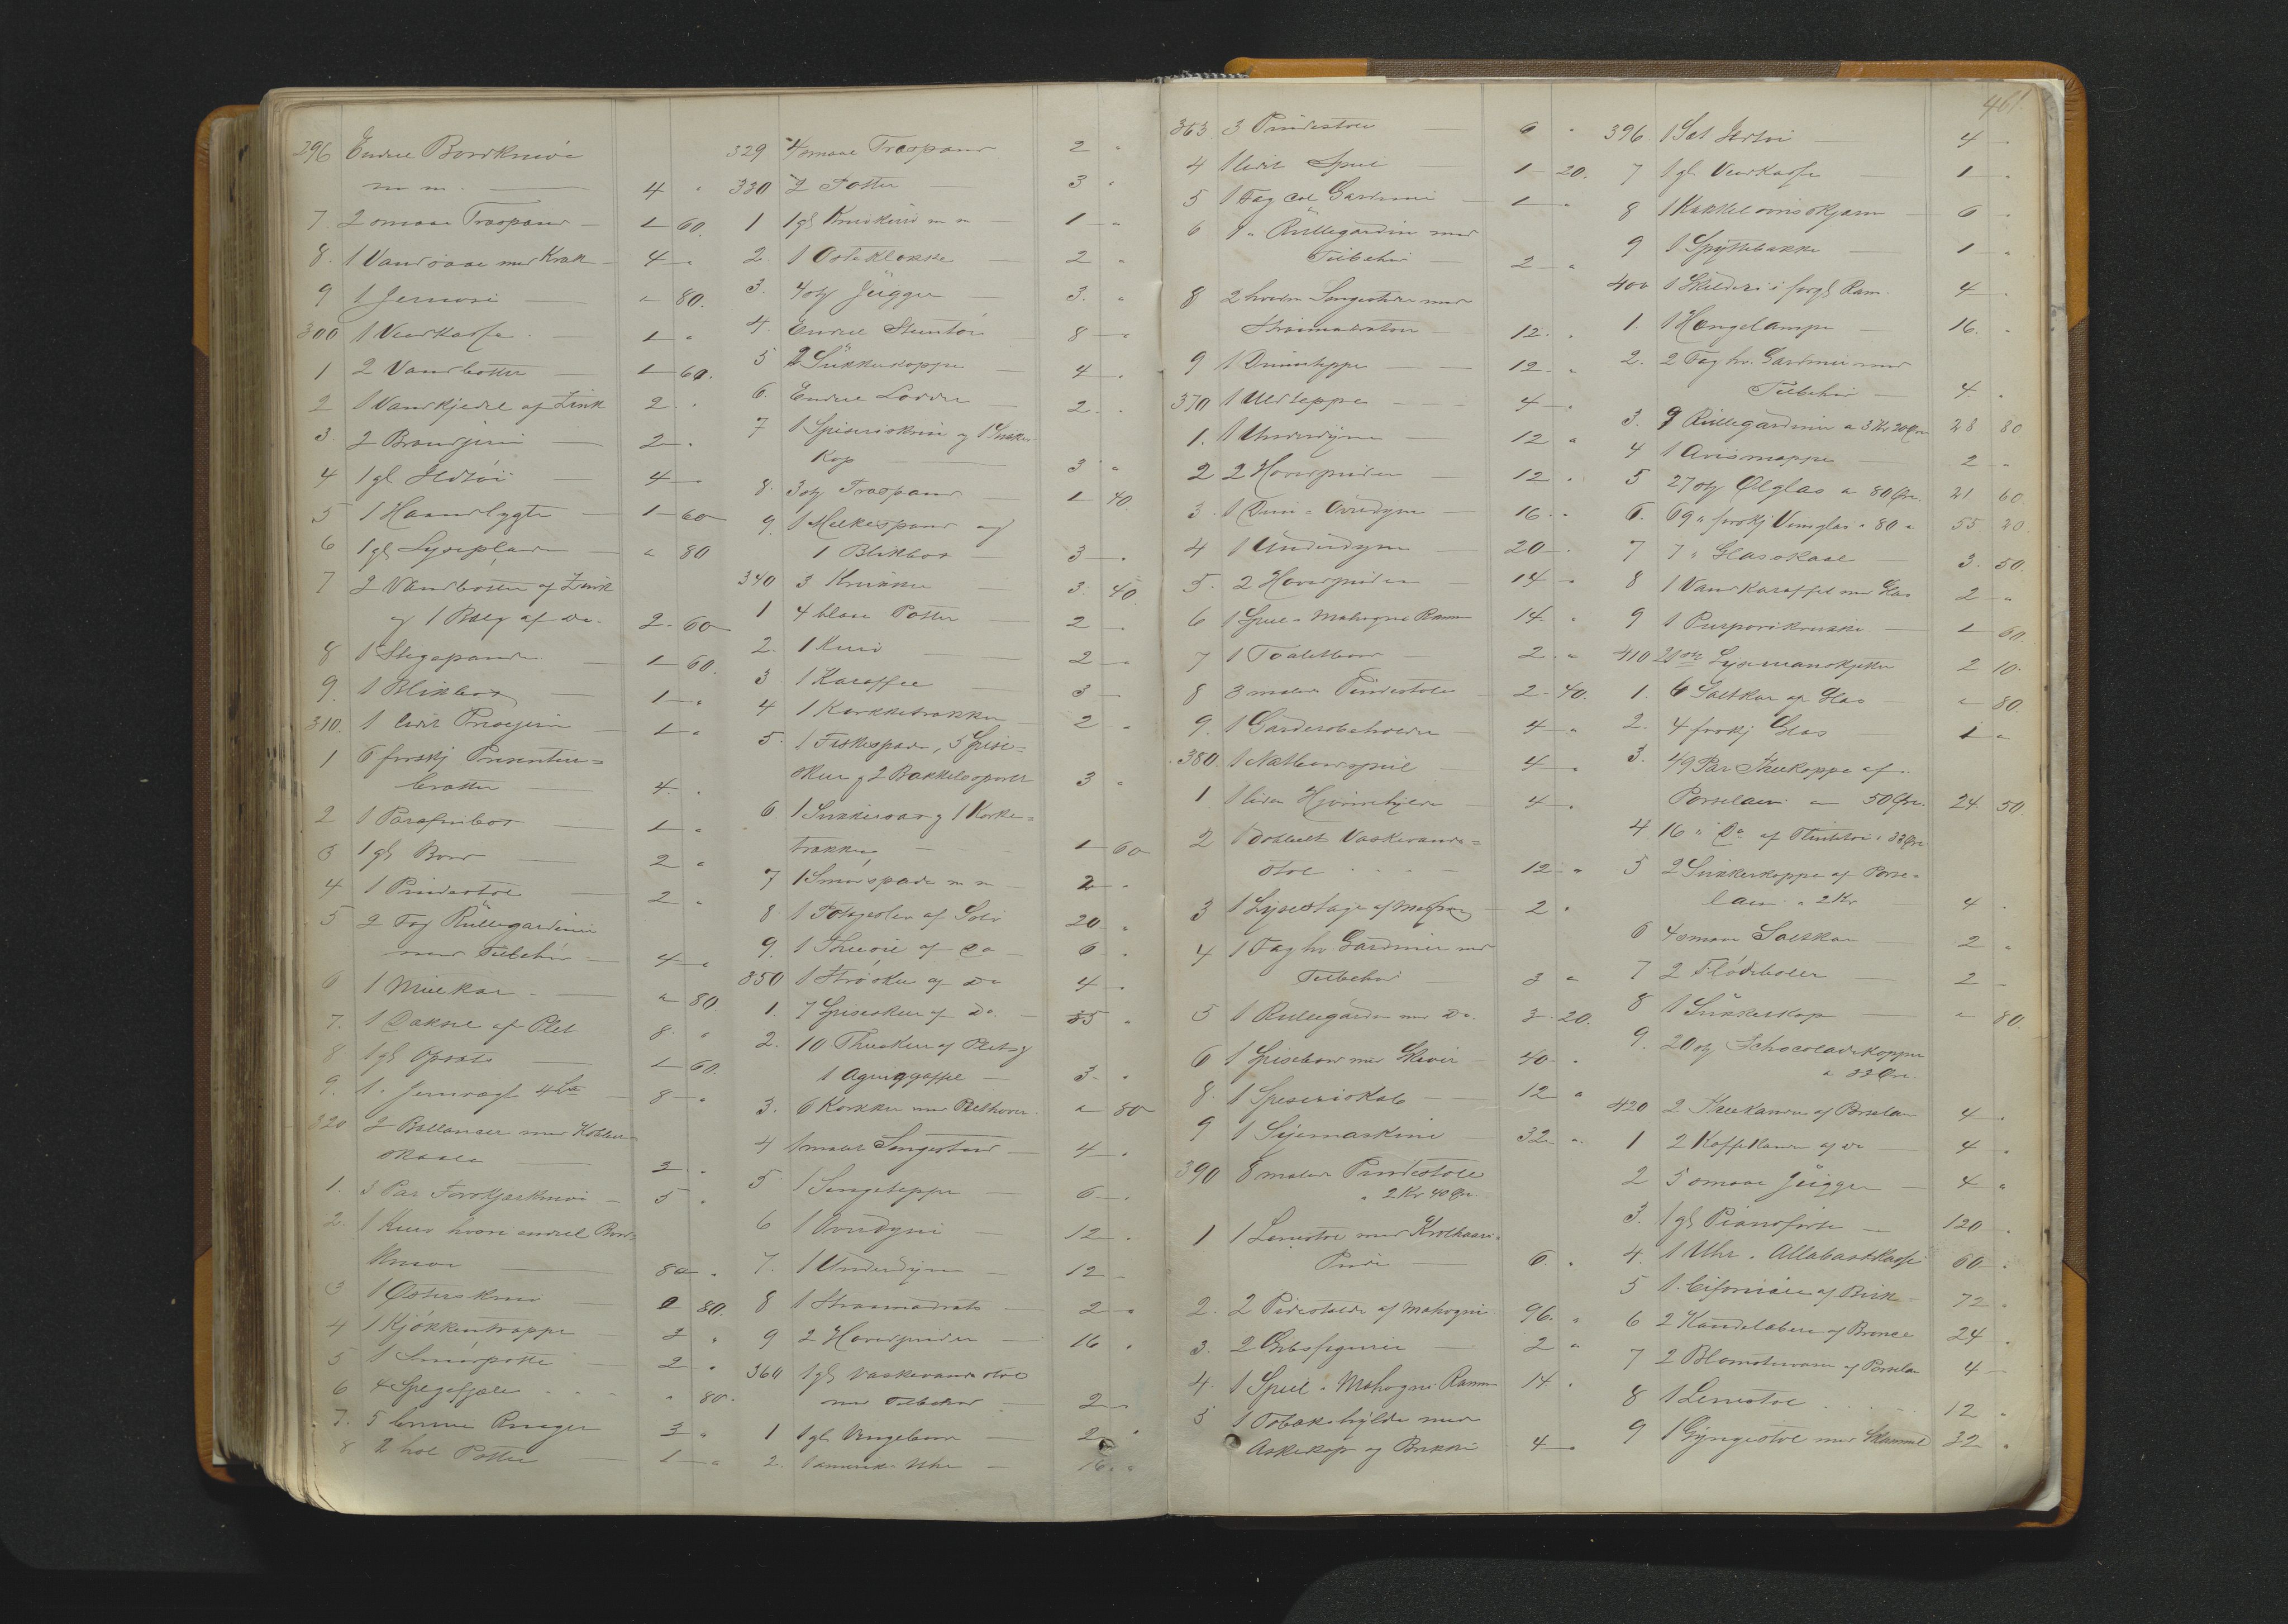 461
296 Endel Bordknive
m m. 4 "
7. 2 smaae Traspand 1 60.
8. 1 Vandsaae med Krak 4 "
9 1 " 80.
300 1 Vedkasse 1 "
1 2 Vandbøtter 1 60.
2 1 Vandkjedel af Zink 2 "
3. 2 Brandjern 2 "
4 1 gl Ildtøi 4 "
5 1 Haandlygte 1 60
6 1 gl Lyseplade " 80
7 2 Vandbøtter af Zink
og 1 Balg af Do. 2. 60
8 1 Stegepande 1 60.
9. 1 Blikbox 1 "
310. 1 lidet 1 "
1 6 forskj Presenteer=
bratter 4. "
2 1 Parafinbox 1 "
3 1 gl Bord 2 "
4 1 Pindestol 2 "
5 2 Fag Rüllegardiner
med Tilbehør 4 "
6 1 " 80.
7. 1 af Plet 8. "
8 1 gl Opsats 1 60.
9. 1. Jernvægt 8 "
320 2 Ballancer med Kobber=
skaale 3 "
1. 3 Par Forskjærknive 5 "
2. 1 Kurv hvori endel Bord=
80 "
3 1 Østerskniv 0 80.
4 1 Kjøkkentrappe 2 "
5 1 Smørpotte 2 "
6 4 " 80.
7. 5 brune 3 "
8 2 hol Potter 1 "
329 4 smaae Traspand 2 "
330 2 Potter 3 "
1 1 gl m m 1 "
2. 1 Osteklokke 2 "
3. 4 stk Jügger 3. "
4. Endeel Steentøi 8 "
5 2 Sükkerkopper 4 "
6. Endeel 2 "
7 1 Spiseriskrin og 1 Sukker
Kop 3 "
8. 3 stk Traspand 1 40
9. 1 Melkespand og
1 Blikbox 3 "
340 3 Krukker 3. 40.
1 4 blaae Potter 2 "
2. 1 Kurv 2 "
3 1 Karaffel 3 "
4 1 Korketrækker 2 "
5. 1 Fiskespade, 5 Spise=
skeer og 2 3 "
6 1 Sukkersax og 1 Korke=
trækker 1 60
7 1 Smørspade m m 2 "
8 1 Potageslev af Sølv 20 "
9. 1 Theesie af Do 6 "
350 1 Strøske af Do 4 "
1. 7 Spiseskeer af Do. 35 "
2. 10 Theskeer af Plet og
1 3 "
3. 6 Korkker med " 80
4 1 malet Sengested 4 "
5 1 Sengeteppe 6 "
6 1 Overdyne 12 "
7. 1 Underdyne 12 "
8 1 Straamadrats 2 "
9 2 Hovedpuder 16 "
360 1 gl Vaskevandstol
med Tilbehør 2 "
1 1 gl 2 "
2. 1 amerik. Uhr 16 "
363 3 Pindestole 6 "
4 1 lidet Speil 1 20.
5 1 Fag Gardiner 1 "
6 1 " Rüllegardin med
Tilbehør 2 "
8 2 Sengesteder med
Straamadratser 12. "
9 1 Duunteppe 12 "
370 1 Uldteppe 4 "
1. 1 Underdyne 12 "
2 2 Hovedpuder 12 "
3. 1 Overdyne 16 "
4 1 Underdyne 20 "
5. 2 Hovedpuder 14 "
6 1 Speil i Mahogni Ramme 14 "
7 1 Toiletbord 2 "
8 3 malede Pindestole 2. 40.
9. 1 Garderobeholder 4 "
380. 1 Natbordspeil 4 "
1 1 liden Hjørnehylde 4 "
2 1 dobbelt Vaskevands=
stol 12 "
3 1 Lysestage af 2 "
4 1 Fag hv. Gardiner med
Tilbehør 3 "
5 1 Rullegardin med Do. 3. 20.
6 1 Spisebord med Skiver 40 "
8. 1 Spiseriskab 12 "
9 1 Syemaskine 32 "
390 8 malede Pindestole
a 2 Kr 40 Øre.
1 1 Lenestol med Krølhaars=
Pude 6 "
2. 2 Pidestaler af Mahogni 96. "
3. 2 Gibsfigurer 2 "
4. 1 Speil i Mahogni Ramme 14 "
5 1 Tobakshylde med
Askekop og 4 "
396 1 Set Ildtøi 4 "
7 1 gl. Vedkasse 1 "
8 1 Kakkelovnsskjærm 6 "
9 1 Spyttebakke 1 "
400 1 Skilderi i forgl Ram. 4 "
1. 1 Hængelampe 16. "
2. 2 Fag hv. Gardiner med
Tilbehør 4 "
3. 9 Rüllegardiner a 3 Kr 20 Øre 28 80
4 1 Avismappe 2 "
5 27 stk Ølglas a 80 Øre. 21 60
6. 69 " forskj Viinglas a 80 " 55. 20.
7 7 " Glasskaale 3. 50.
8 1 Vandkaraffel med Glas 2 "
9 1 1 60.
410 21 stk Lysemanskjetter 2 10.
1. 6 Saltkar af Glas " 80.
2. 4 forskj Glas 1 "
3. 49 Par Theekopper af
Porselæn a 50 Øre. 24. 50.
4. 16 " Do af Flinttøi a 33 Øre
5 2 Sukkerkopper af Porse=
læn a 2 Kr 4 "
6 4 smaae Saltkar 2 "
7 2 Flødeboller 2 "
8 1 Sükkerkop " 80.
9. 20 stk Schocoladekopper
a 33 Øre.
420 2 Theekander af Porselæn 4 "
1 2 Kaffekander af Do 4 "
2 5 smaae Jügger 4 "
3. 1 gl Pianoforte 120 "
4. 1 Uhr i Allabastkasse 60 "
5 1 af Birk 72 "
6 2 Kandelabere af Bronce 24 "
7 2 Blomstervaser af Porselæn 4 "
8 1 Lenestol 12 "
9 1 Gyngestol med Skammel 32 "